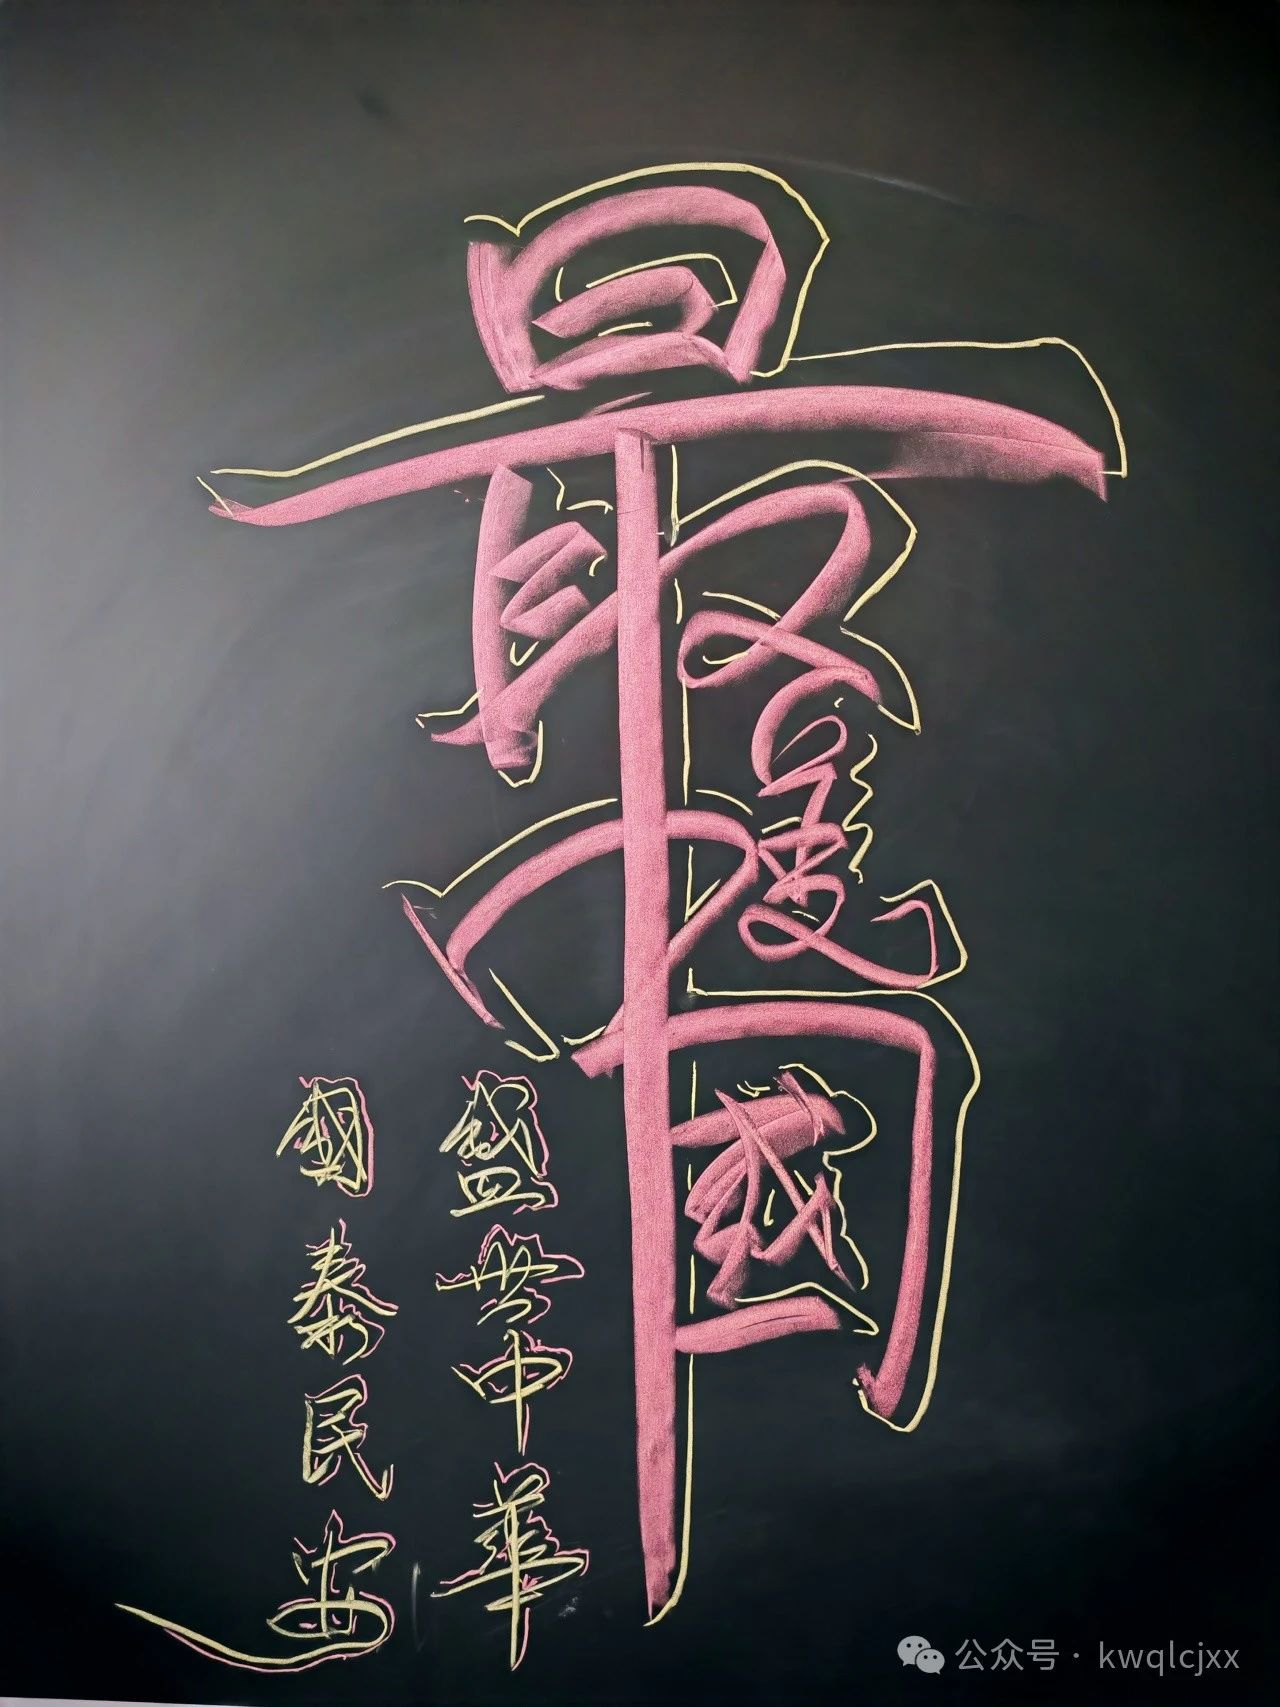 最美中國
盛世中華
國泰民安
公众号 · kwqlcjxx